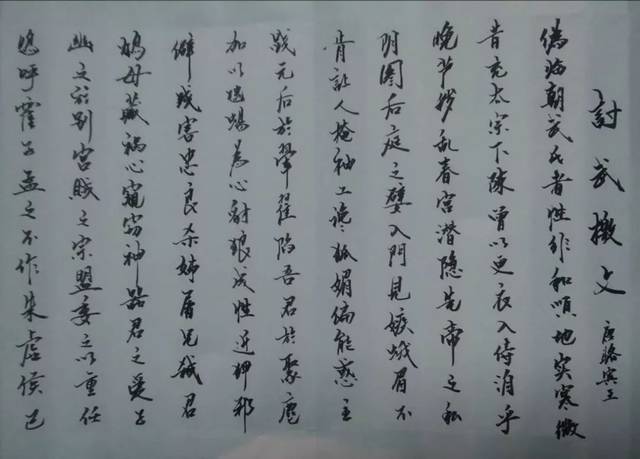 討武檄文
唐駱賓王
偽臨朝武氏者性非和順地實寒微
昔充太宗下陳曾以更衣入侍洎乎
晚節穢亂春宮潛隱先帝之私
陰圖后庭之嬖入門見嫉蛾眉不
肯讓人掩袖工讒狐媚偏能惑主
踐元后於翬翟陷吾君於聚麀
加以虺蜴為心豺狼成性近狎邪
僻殘害忠良殺姊屠兄弒君
鴆母藏禍心窺竊神器君之愛子
幽之於別宮賊之宗盟委之以重任
嗚呼霍子孟之不作朱虛侯已